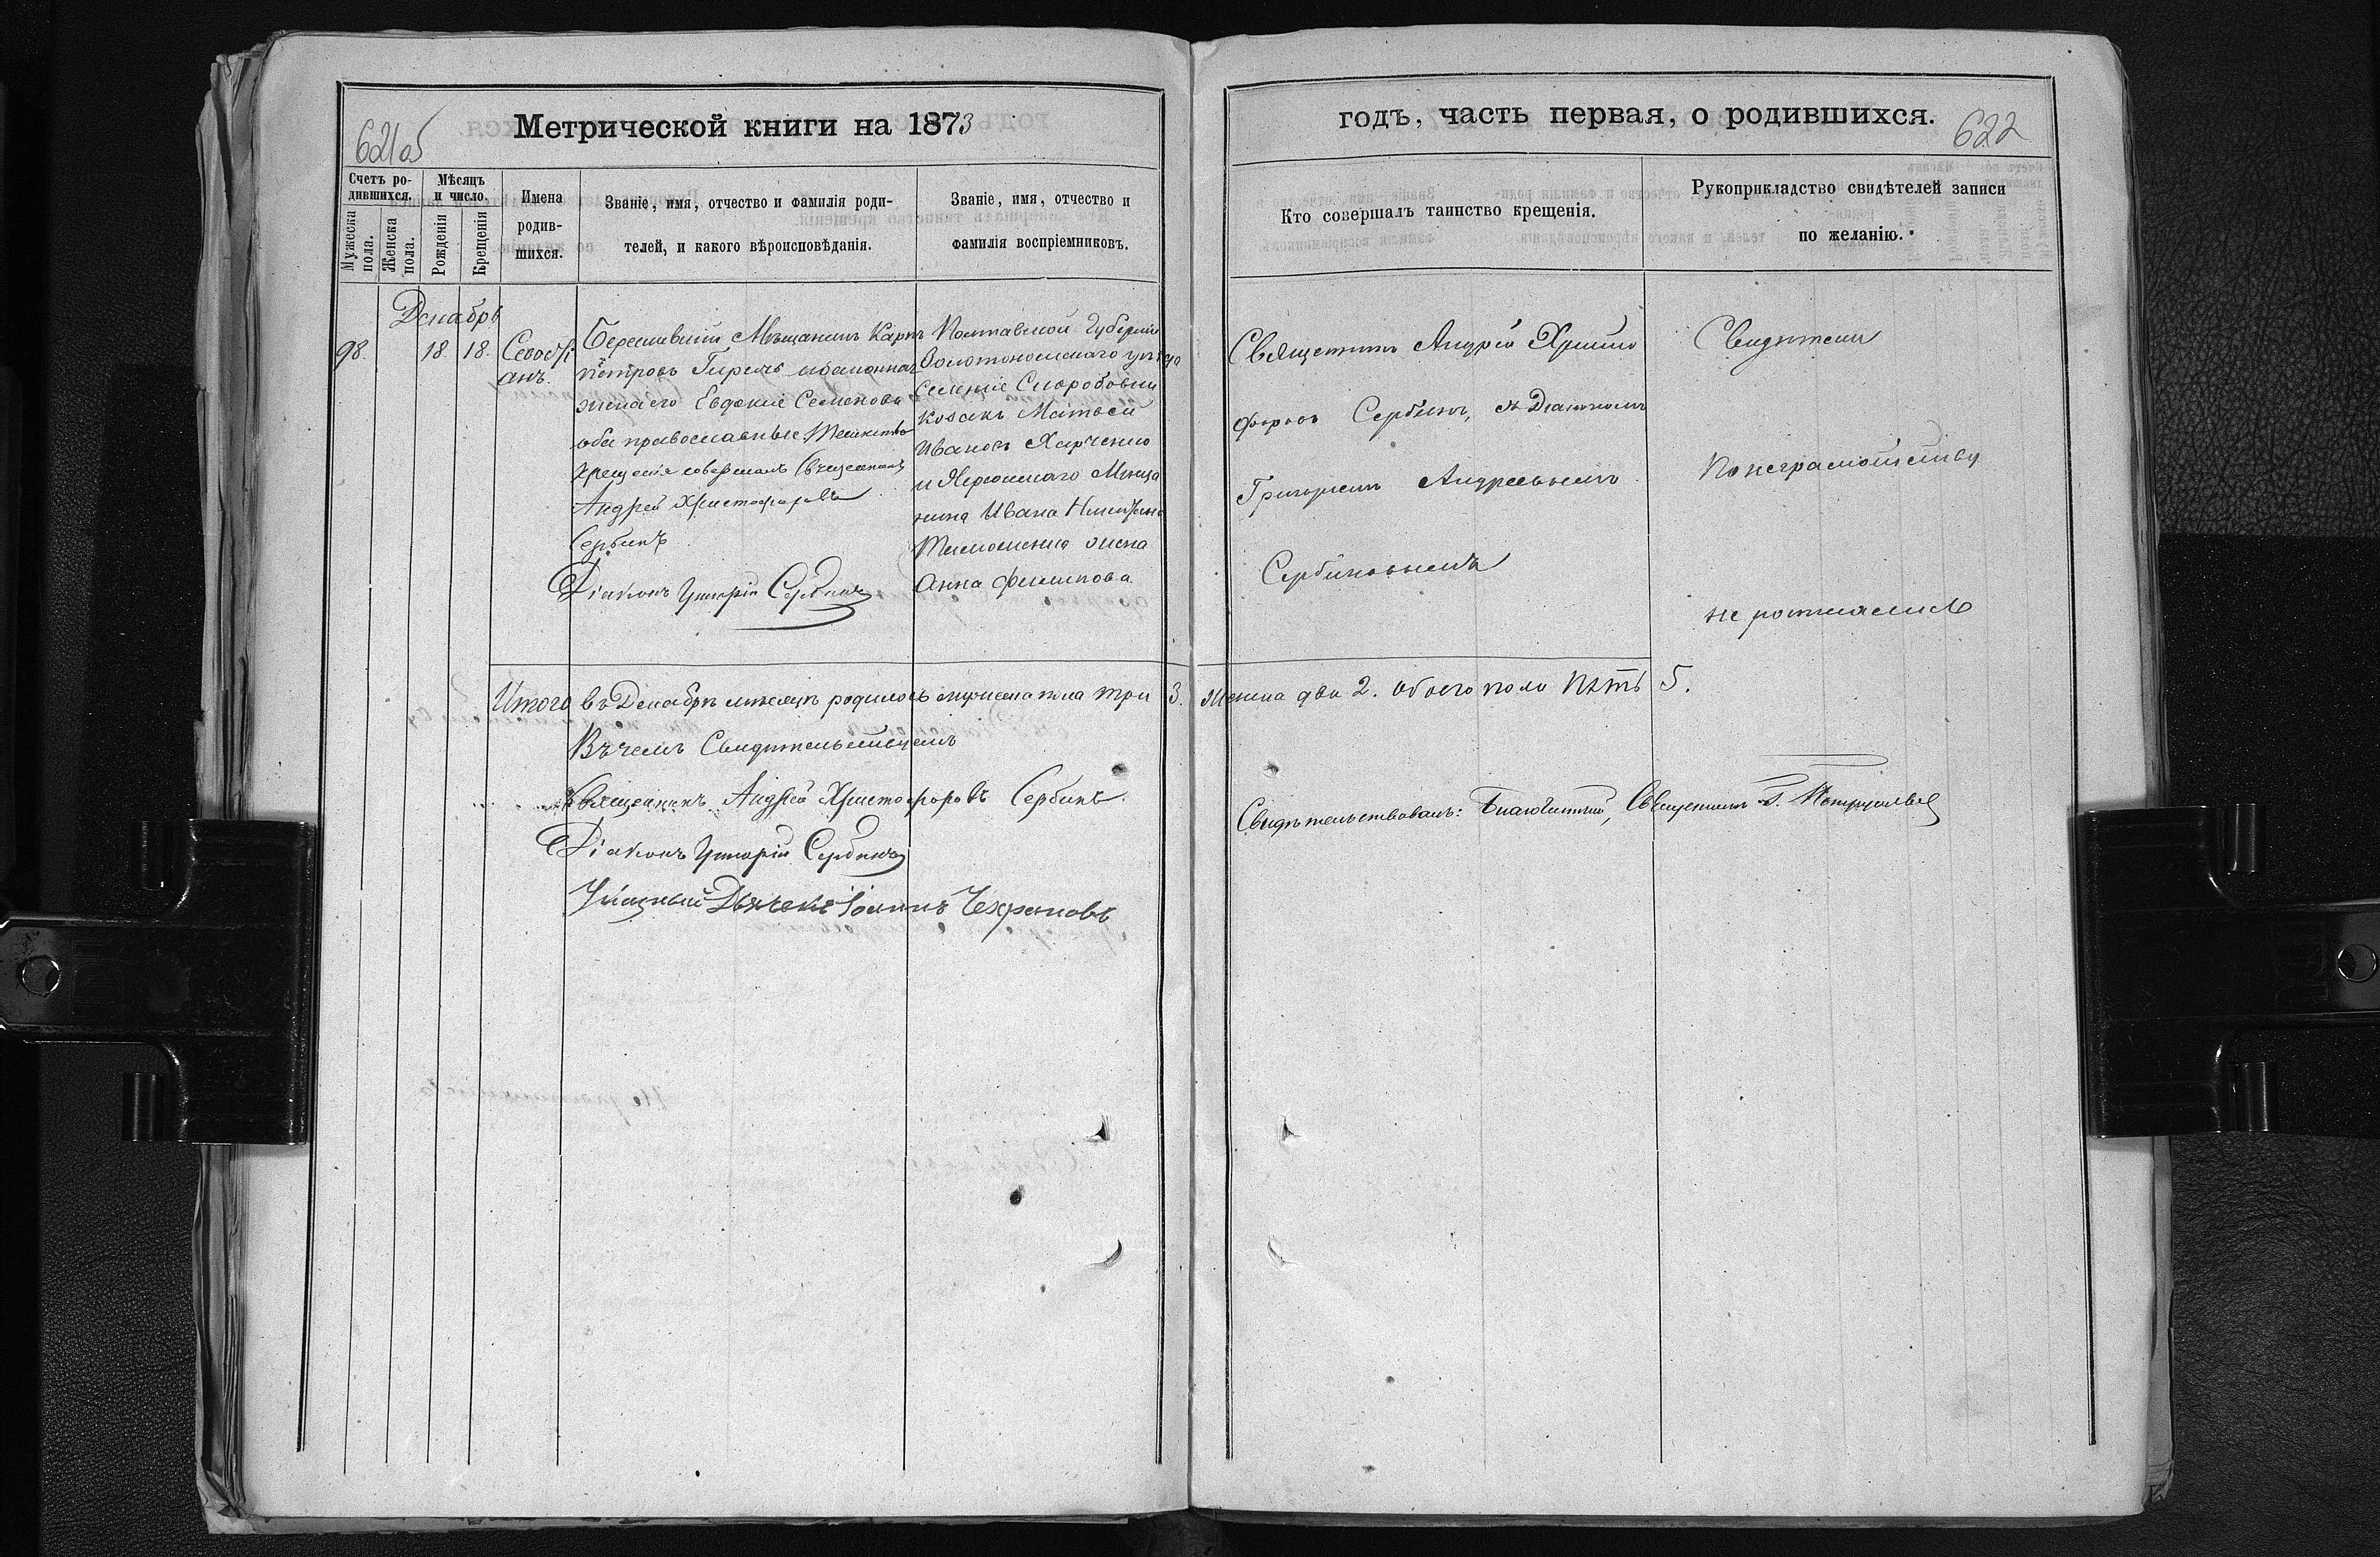 Метрической книги на 1873
621 об
Счетъ ро-
дившихся.
Мѣсяцъ
и число.
Мужеска
пола.
Женска
пола.
Рожденія
Крещенія
Имена
родив-
шихся.
Званіе, имя, отчество и фамилія роди-
телей, и какого вѣроисповѣданія.
Званіе, имя, отчество и
фамилія воспріемниковъ.
Декабрь
98.
18.
18.
Севасті
анъ.
Мѣщанинъ Карпъ
Петровъ и законная
жена его Евдокія Семенова
оба православные. Таинство
крещенія совершалъ Священникъ
Андрей Христофоровъ
Сербинъ
Діаконъ Григорій Сербинъ
Полтавской Губерніи
Золотоношскаго уѣзда
козакъ Матвей
Ивановъ Харченко
и Херсонскаго Мѣща
нина Ивана
жена
Анна Филипова
Итого въ Декабрѣ мѣсяцѣ родилось мужеска пола три 3.
Въ чемъ Свидѣтельствуемъ
Священникъ Андрей Христофоровъ Сербинъ.
Діаконъ Григорій Сербинъ
Указный Дьячекъ Іоаннъ
годъ, часть первая, о родившихся.
622
Кто совершалъ таинство крещенія.
Рукоприкладство свидѣтелей записи
по желанію.
Священникъ Андрей Христо
форовъ Сербинъ, съ Діакономъ
Григоріемъ Андреевымъ
Сербиновымъ
Свидѣтели
По неграмотству
не росписались
женска два 2. обоего пола пять 5.
Свидѣтельствовалъ: Благочинный, Священникъ